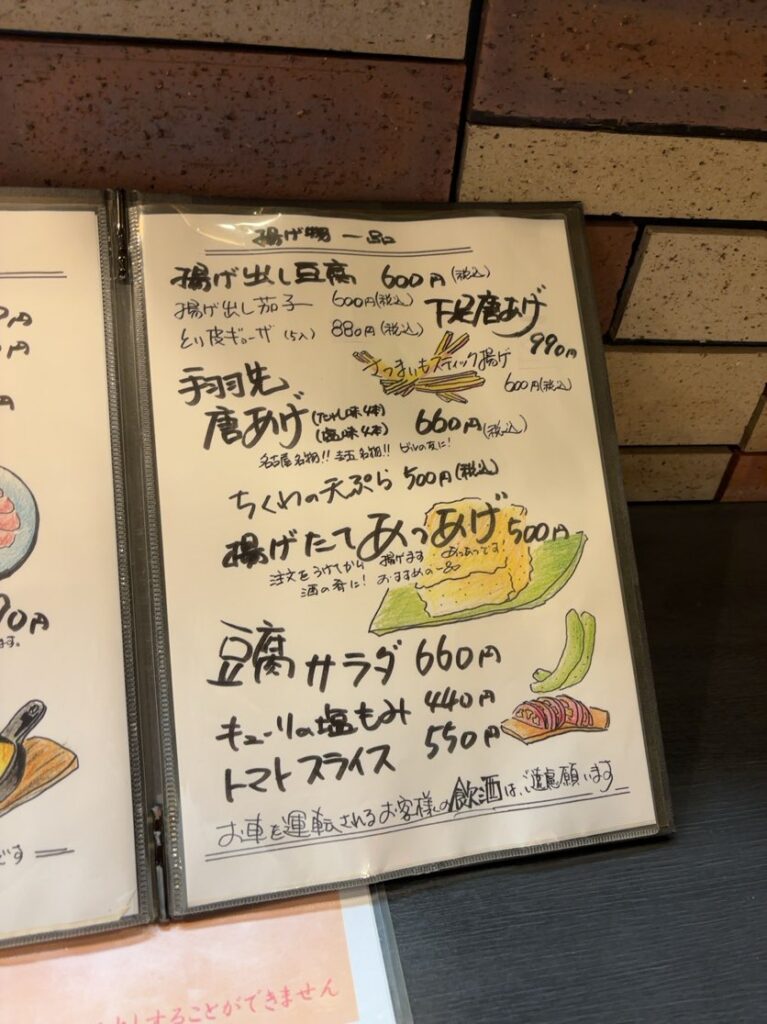 揚げ物 一品
揚げ出し豆腐 600円(税込)
揚げ出し茄子 600円(税込)
下足唐あげ 990円
とり皮ギョーザ (5入) 880円(税込)
さつまいもスティック揚げ
600円(税込)
手羽先
唐あげ 660円(税込)
(塩味4本)
名古屋名物!!
ちくわの天ぷら 500円(税込)
揚げたてあつあげ 500円
注文をうけてから 揚げます あつあつです!
酒の肴に! おすすめの一品
豆腐サラダ 660円
キューリの塩もみ 440円
トマトスライス 550円
お車を運転されるお客様の飲酒は、ご遠慮願います
90円
ます。
です
することができません